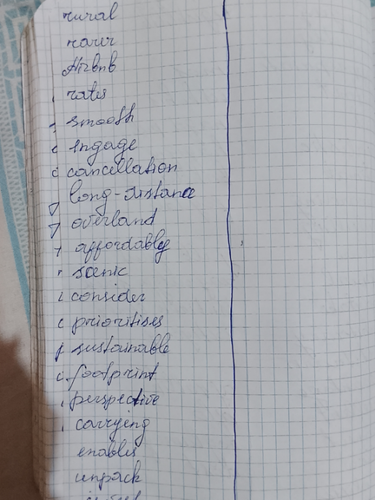 rural
Airbnb
rates
smooth
engage
cancellation
long-distance
overland
affordably
scenic
consider
prioritises
sustainable
footprint
perspective
carrying
enables
unpack